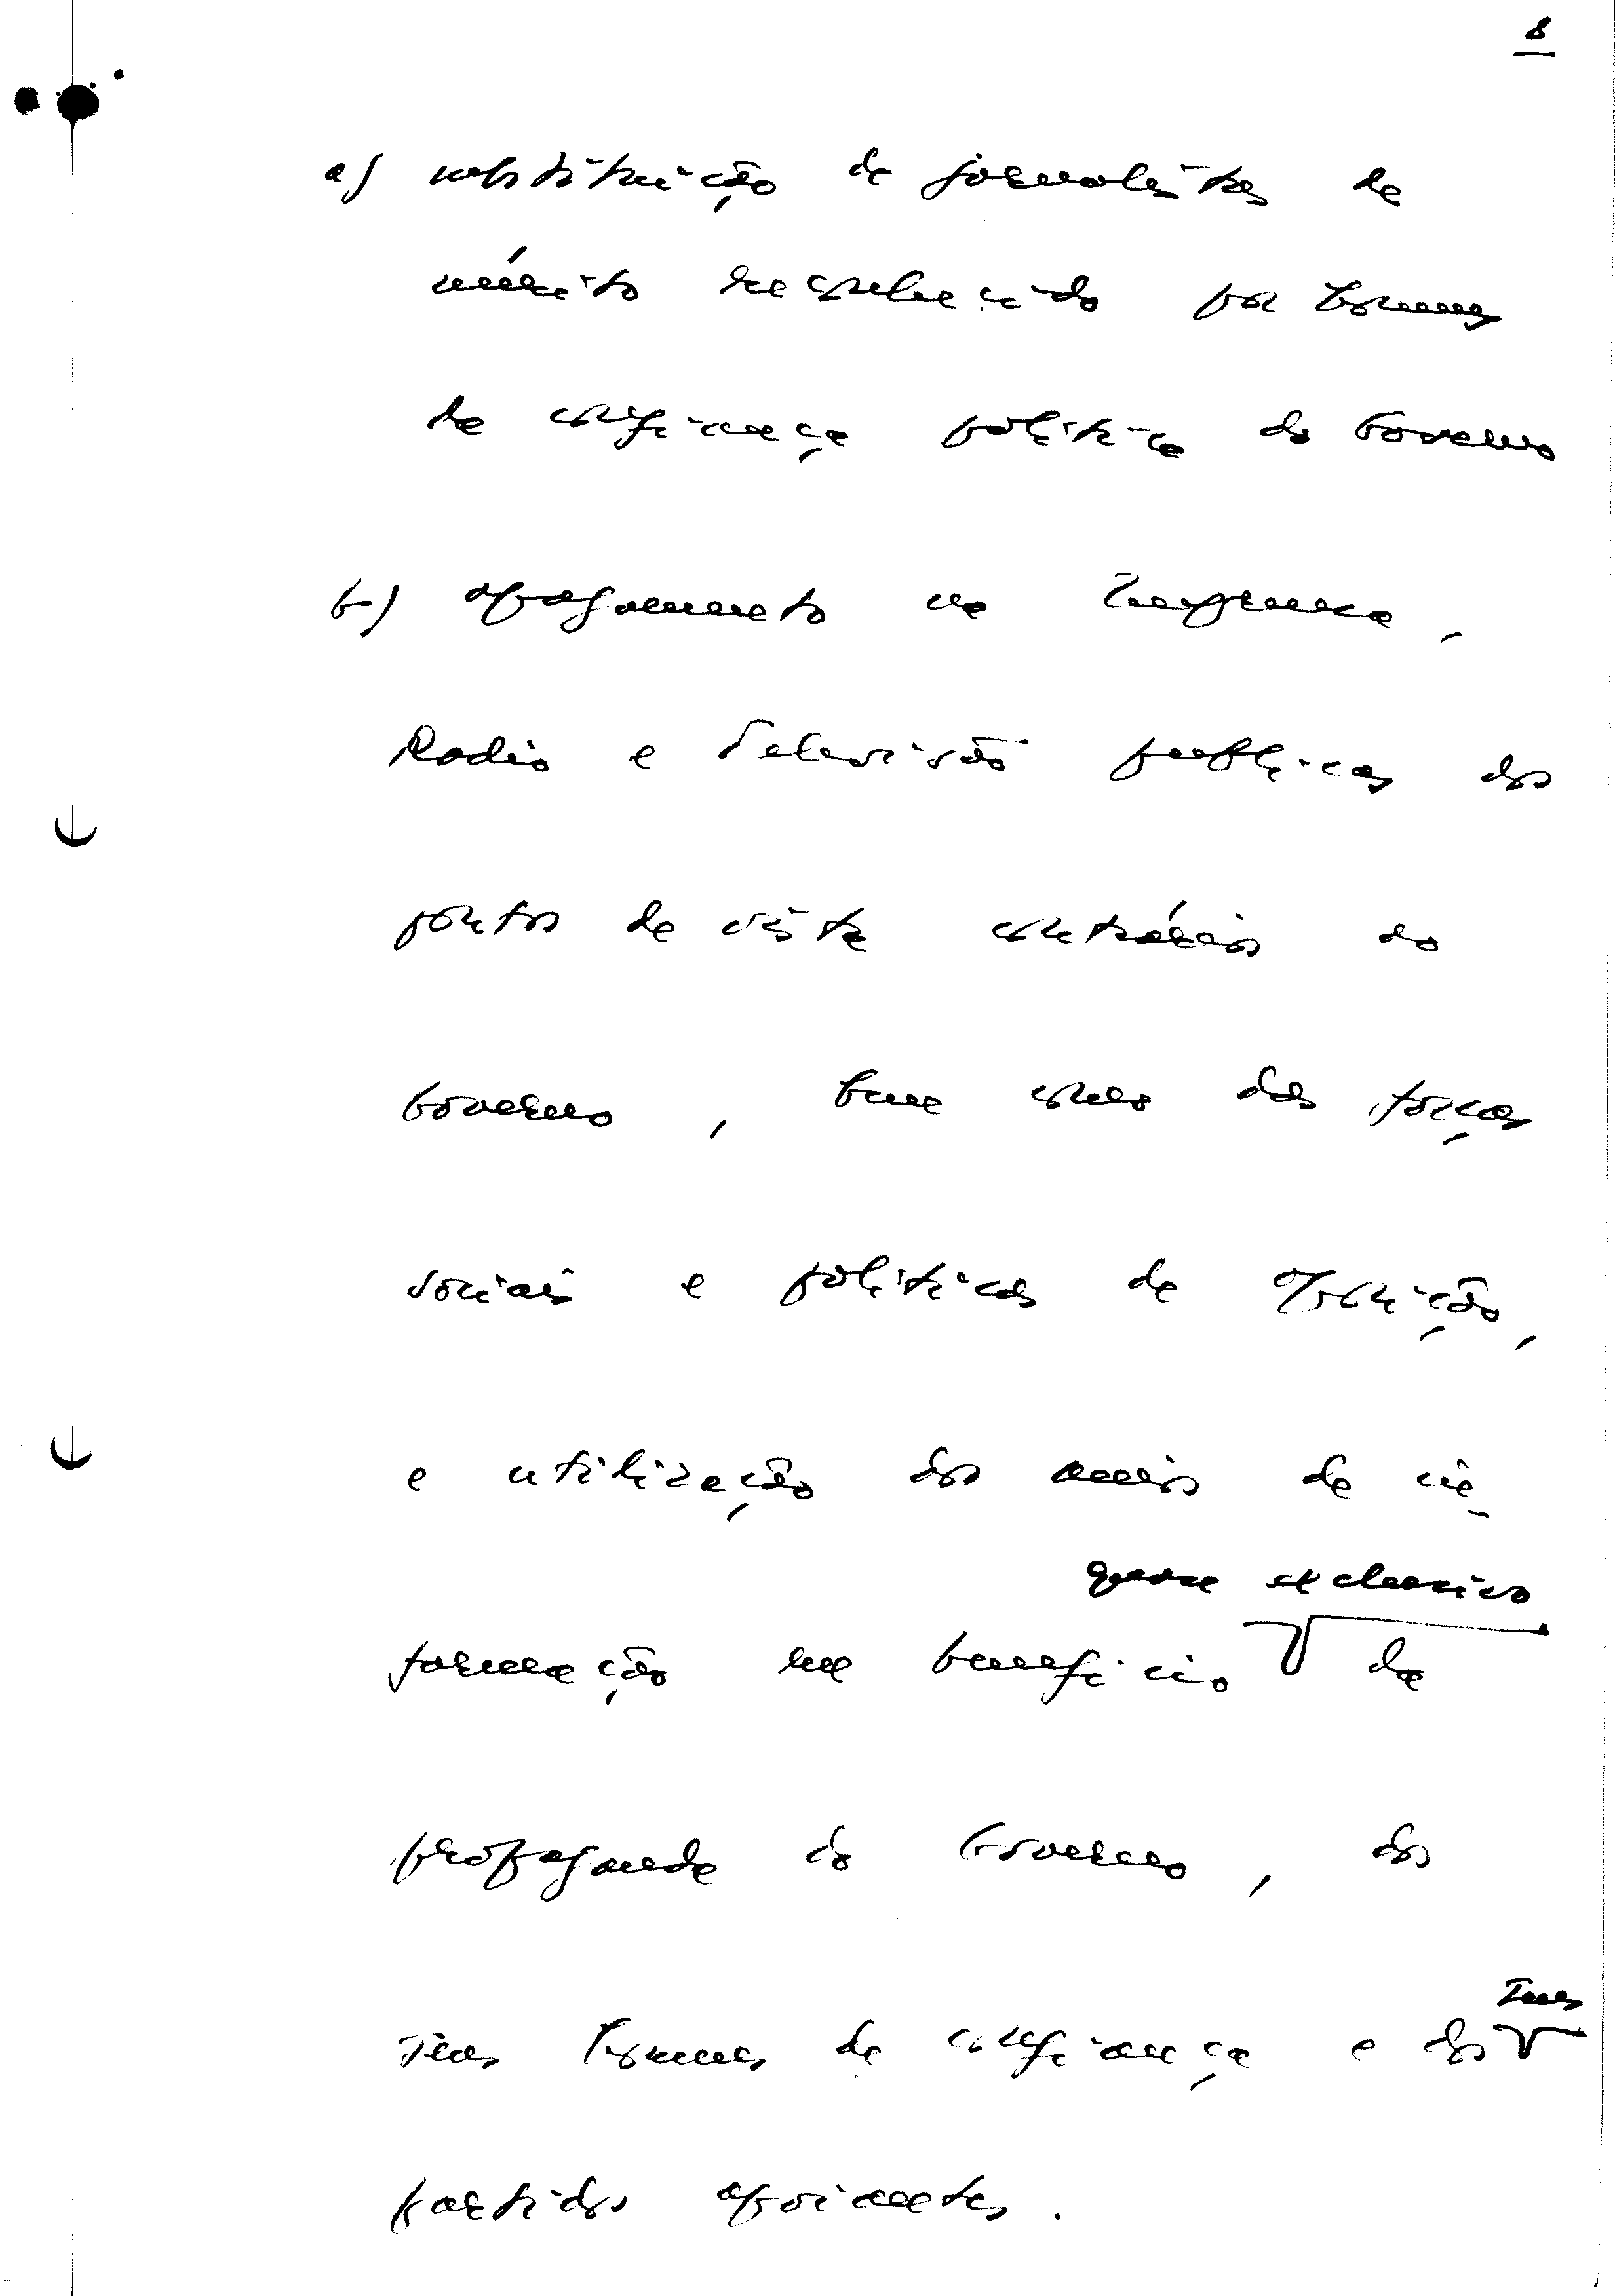 8
a) substituição de jornalistas de
mérito reconhecido por homens
de confiança política do Governo
b) apagamento na Imprensa,
Radio e Televisão publicas dos
pontos de vista contrários ao
Governo, bem como das forças
sociais e politicas de oposição,
e utilização dos meios de in-
quase exclusivo
formação em beneficio da
propaganda do Governo, dos
seus homens de confiança e dos
seus
partidos apoiantes.